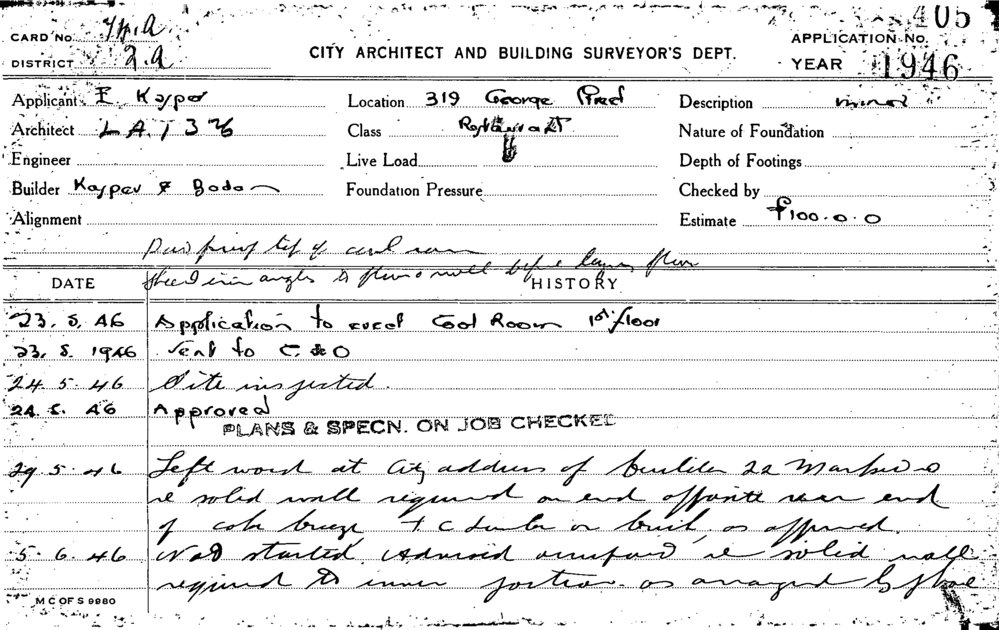 CARD No. 74.A
DISTRICT 2.A
CITY ARCHITECT AND BUILDING SURVEYOR'S DEPT.
405
APPLICATION No.
YEAR 1946
Applicant E Kasper Location 319 George Street Description minor
Architect LA 1376 Class Restaurant Nature of Foundation
Engineer Live Load Depth of Footings
Builder Kasper & Foundation Pressure Checked by
Alignment Estimate £100.0.0
proof top of cool room
Steel iron angles to floor & wall before laying floor
DATE HISTORY
23.5.46 Application to erect Cool Room 1st floor
23.5.1946 Sent to C & O
24.5.46 Site inspected.
24.5.46 Approved
PLANS & SPECN. ON JOB CHECKED
29.5.46 Left word at City address of builder 22
re solid wall required on end opposite rear end
of coke breeze, or brick, as approved.
5.6.46 Not started. Advised re solid wall
required to inner portion as arranged by phone
M C OF S 9880